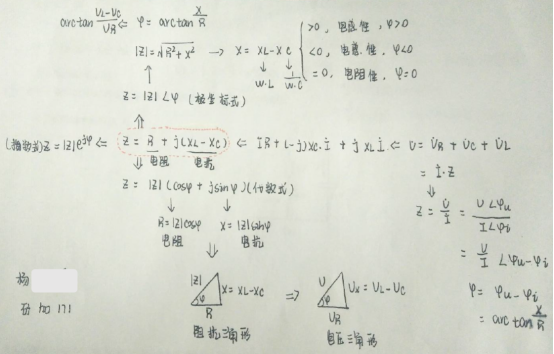 arctan (UL-UC)/UR ⇐ φ = arctan X/R
|Z| = √(R²+X²) → X = XL - XC { >0, 电感性, φ>0
<0, 电容性, φ<0
=0, 电阻性, φ=0
W·L 1/(W·C)
Z = |Z|∠φ (极坐标式)
(指数式) Z = |Z|e^jφ ⇐ Z = R + j(XL-XC) ⇐ İR + (-j)XC·İ + jXLİ ⇐ U̇ = U̇R + U̇C + U̇L
电阻 电抗
= İ·Z
Z = |Z|(cosφ + jsinφ)(代数式)
Z = U̇/İ = U∠φu / I∠φi
R=|Z|cosφ X=|Z|sinφ
电阻 电抗
= U/I ∠φu-φi
|Z| φ R X = XL-XC ⇒ U φ UR UX = UL-UC
φ = φu-φi
= arctan X/R
阻抗三角形 电压三角形
杨
171